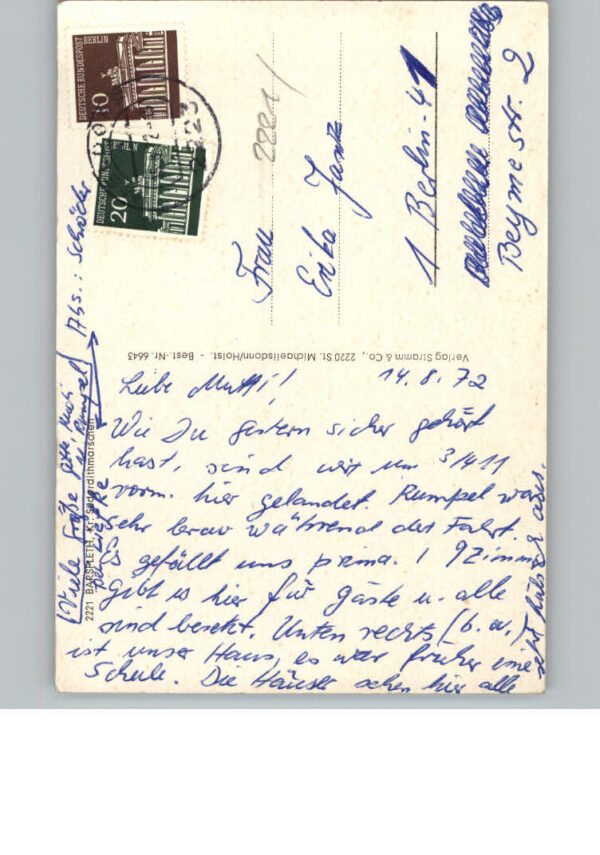 Liebe Mutti! 14.8.72
Wie Du gestern sicher gehört
hast, sind wir um 3/4 11
vorm. hier gelandet. Rumpel war
sehr brav während der Fahrt.
Es gefällt uns prima. 19 Zimmer
gibt es hier für Gäste u. alle
sind besetzt. Unten rechts (b. w.)
ist unser Haus, es war früher eine
Schule. Die Häuser sehen hier alle
sehr hübsch aus.
Viele Grüße
u. Rumpel
17 bs.: Schröder
2221 BARSFLETH, Kr. Süderdithmarschen
Verlag Stramm & Co., 2220 St. Michaelisdonn/Holst. - Best.-Nr. 6643
DEUTSCHE BUNDESPOST
BERLIN
10
DEUTSCHE BUNDESPOST
BERLIN
20
2221
Frau
Erika
1 Berlin-41
Beymestr. 2